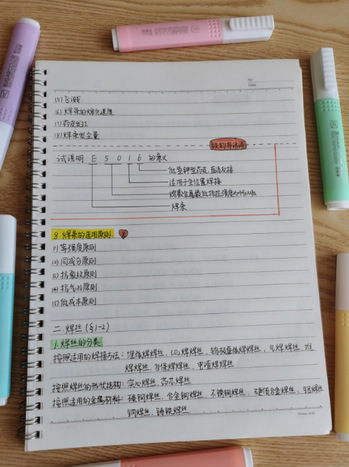 (5)飞溅
(6)焊条的熔化速度
(7)药皮发红
(8)焊条发尘量
试说明 E 5 0 1 6 的意义
低氢钾型药皮,直流反接
适用于全位置焊接
焊条
3.焊条的选用原则
(1)等强度原则
(2)同成分原则
(3)抗裂纹原则
(4)抗气孔原则
(5)低成本原则
二.焊丝(§1-2)
1.焊丝的分类
按照适用的焊接方法:埋弧焊焊丝、CO₂焊焊丝、钨极氩弧焊焊丝、气焊焊丝、
焊焊丝、自保焊焊丝、电渣焊焊丝
按照焊丝的形状结构:实心焊丝、药芯焊丝
按照适用的金属材料:碳钢焊丝、合金钢焊丝、不锈钢焊丝、硬质合金焊丝、铝焊丝
铜焊丝、铸铁焊丝